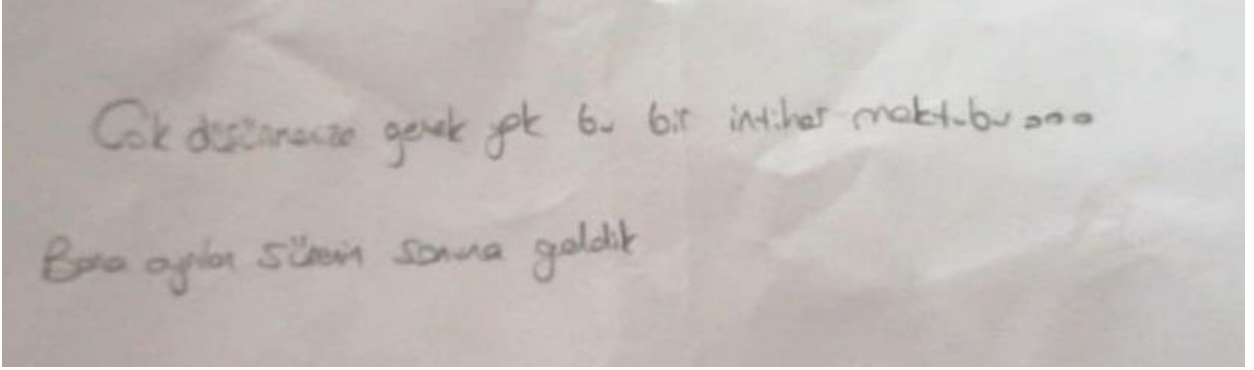 Çok düşünmenize gerek yok bu bir intihar maktubu...
Bana ayrılan sürenin sonuna galdik